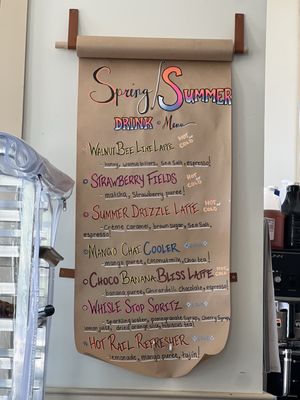 Spring/Summer
DRINK Menu
Walnut Bee Line Latte HOT or COLD
- honey, walnut bitters, sea salt, espresso!
Strawberry Fields HOT or COLD
- matcha, strawberry puree!
Summer Drizzle Latte HOT or COLD
- Crème caramel, brown sugar, sea salt,
espresso!
Mango Chai Cooler
- mango puree, coconut milk, chai tea!
Choco Banana Bliss Latte HOT or COLD
- banana puree, Ghirardelli chocolate, espresso!
Whisle Stop Spritz
- Sparkling water, pomegranate syrup, cherry syrup,
lemon juice, dried orange slice, hibiscus tea!
Hot Rail Refresher
- lemonade, mango puree, tajin!